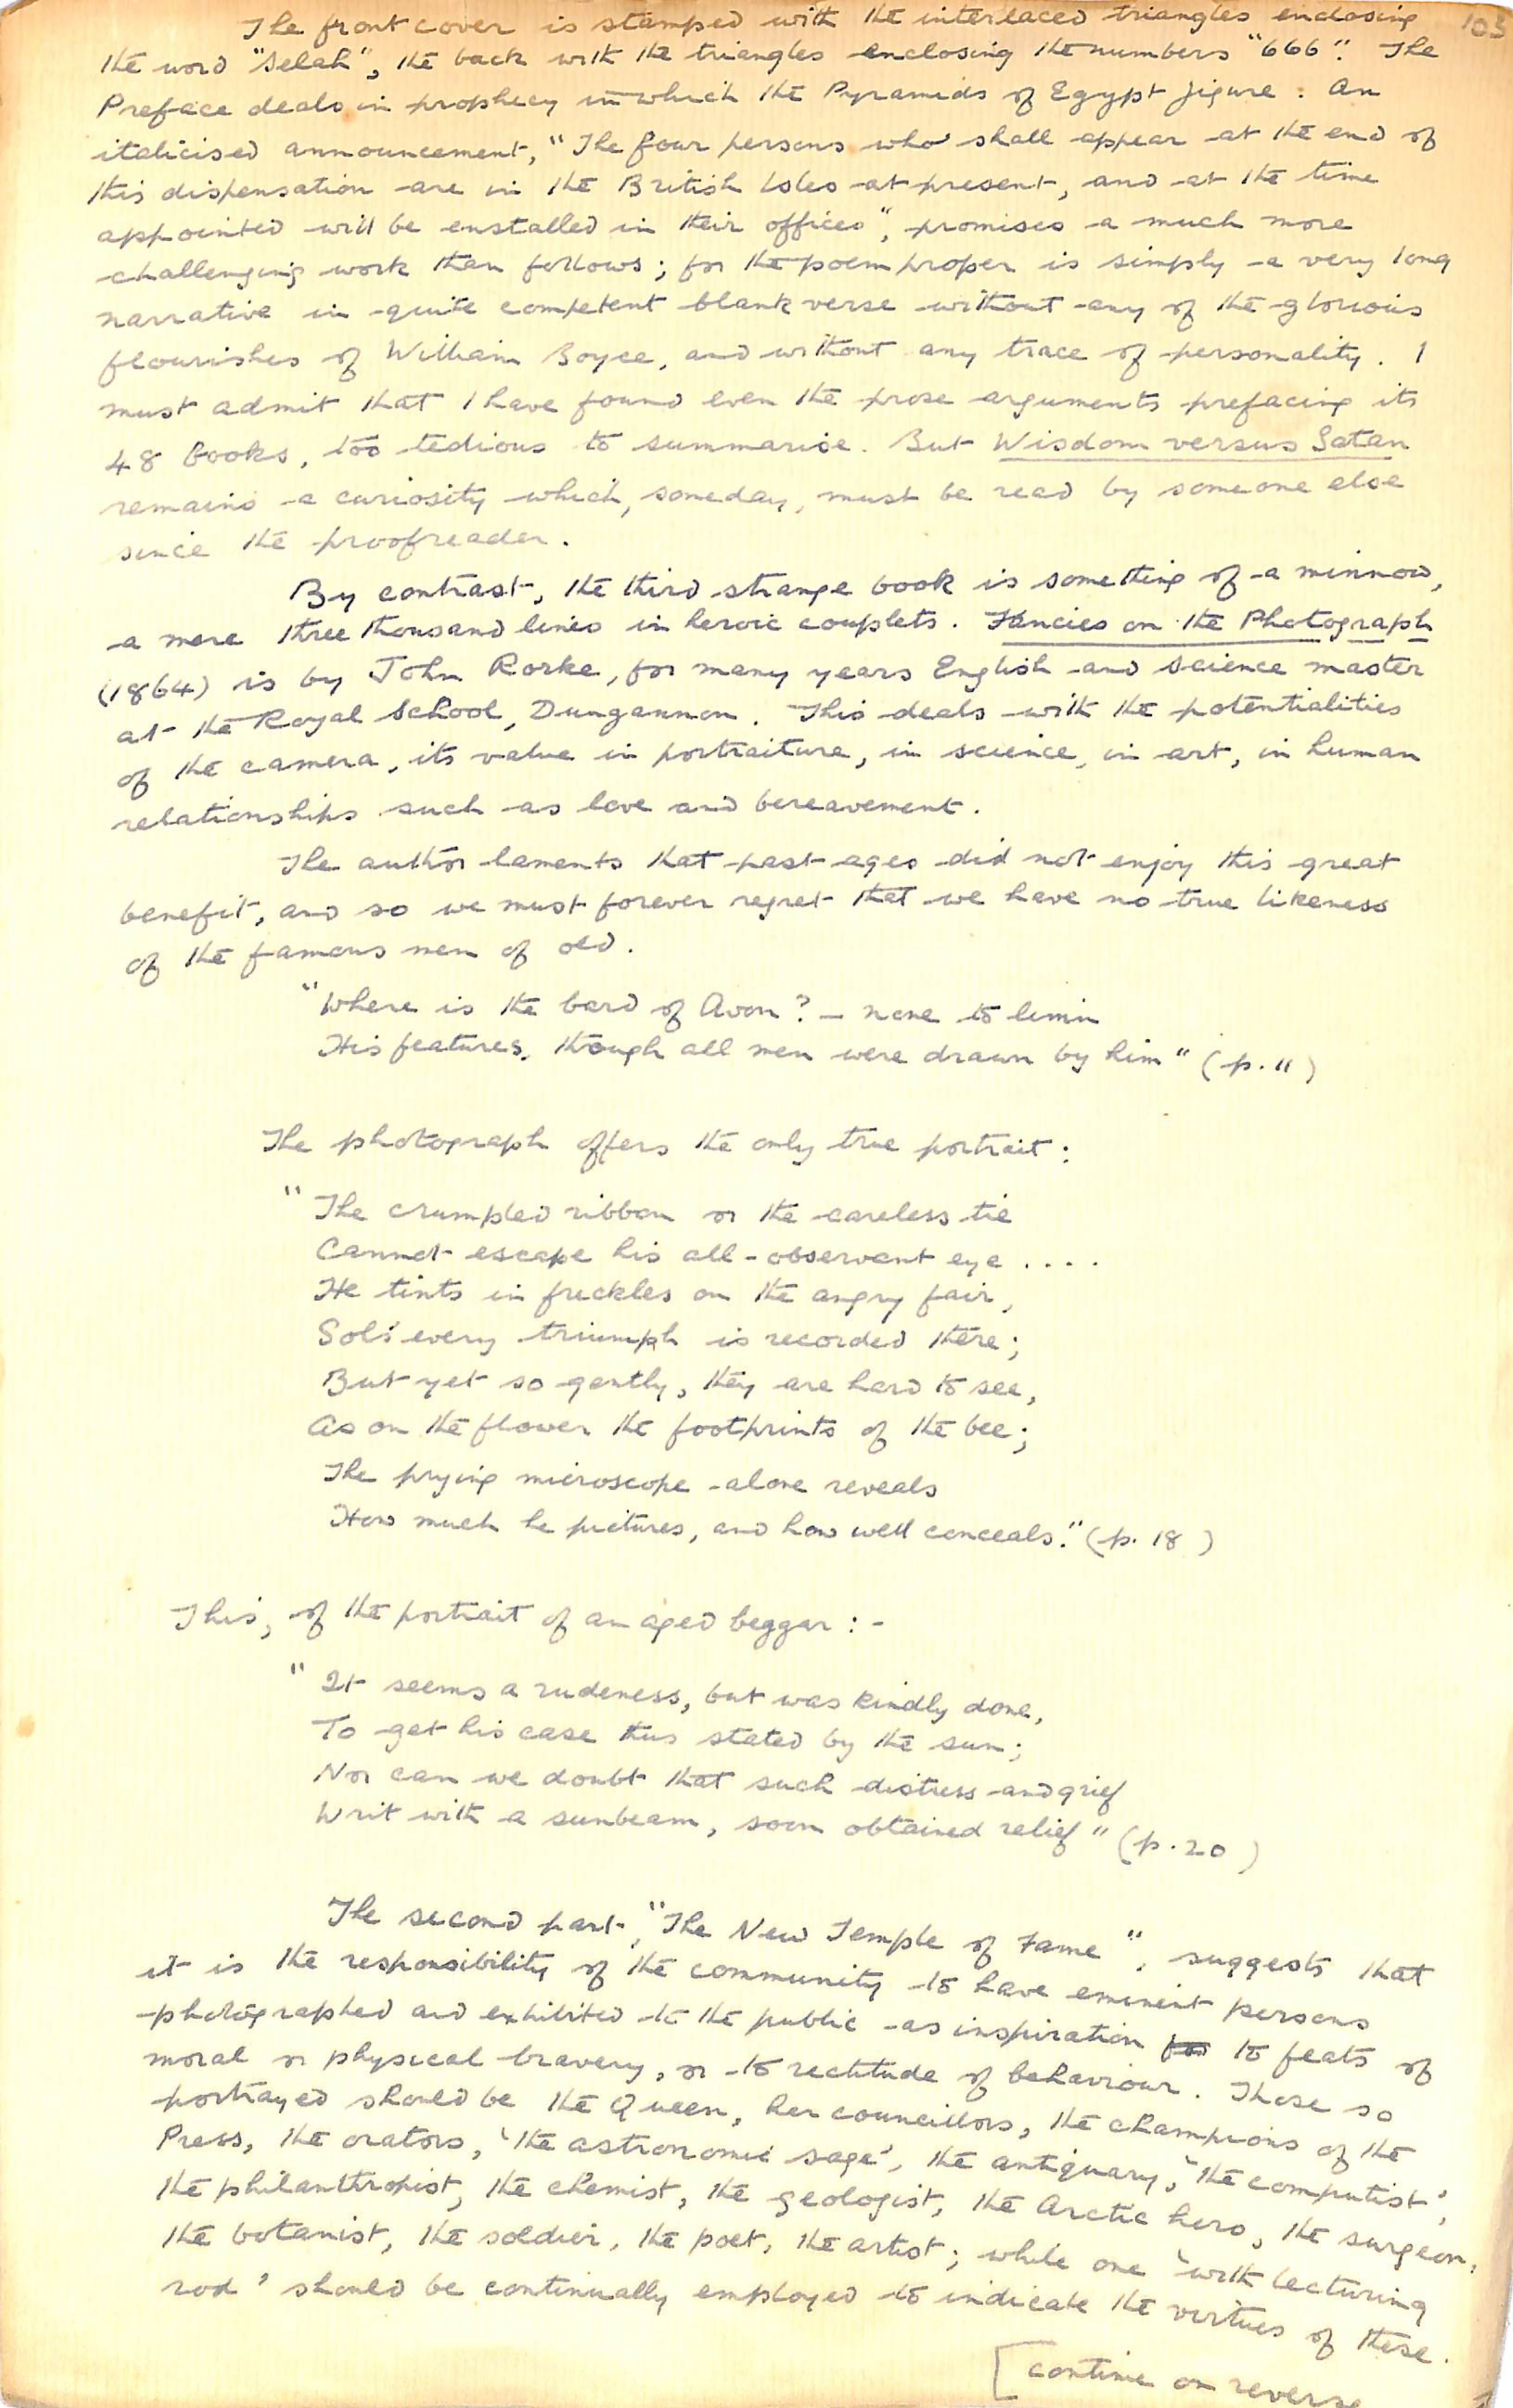 103
The front cover is stamped with the interlaced triangles enclosing
the word "Selah", the back with the triangles enclosing the numbers "666". The
Preface deals in prophecy in which the Pyramids of Egypt figure. An
italicised announcement, "The four persons who shall appear at the end of
this dispensation are in the British Isles at present, and at the time
appointed will be enstalled in their offices", promises a much more
challenging work than follows; for the poem proper is simply a very long
narrative in quite competent blank verse without any of the glorious
flourishes of William Boyce, and without any trace of personality. I
must admit that I have found even the prose arguments prefacing its
48 books, too tedious to summarise. But Wisdom versus Satan
remains a curiosity which, someday, must be read by someone else
since the proofreader.
By contrast, the third strange book is something of a minnow,
a mere three thousand lines in heroic couplets. Fancies on the Photograph
(1864) is by John Rorke, for many years English and science master
at the Royal School, Dungannon. This deals with the potentialities
of the camera, its value in portraiture, in science, in art, in human
relationships such as love and bereavement.
The author laments that past ages did not enjoy this great
benefit, and so we must forever regret that we have no true likeness
of the famous men of old.
"Where is the bard of Avon? - none to limn
His features, though all men were drawn by him" (p. 11)
The photograph offers the only true portrait:
"The crumpled ribbon or the careless tie
Cannot escape his all-observant eye ....
He tints in freckles on the angry fair,
Sol's every triumph is recorded there;
But yet so gently, they are hard to see,
As on the flower the footprints of the bee;
The prying microscope alone reveals
How much he pictures, and how well conceals." (p. 18)
This, of the portrait of an aged beggar:-
"It seems a rudeness, but was kindly done,
To get his case thus stated by the sun;
Nor can we doubt that such distress and grief
Writ with a sunbeam, soon obtained relief" (p. 20)
The second part, "The New Temple of Fame", suggests that
it is the responsibility of the community to have eminent persons
photographed and exhibited to the public as inspiration for to feats of
moral or physical bravery, or to rectitude of behaviour. Those so
portrayed should be the Queen, her councillors, the champions of the
Press, the orators, 'the astronomic sage', the antiquary, 'the computist',
the philanthropist, the chemist, the geologist, the Arctic hero, the surgeon,
the botanist, the soldier, the poet, the artist; while one 'with lecturing
rod' should be continually employed to indicate the virtues of these.
[continue on reverse